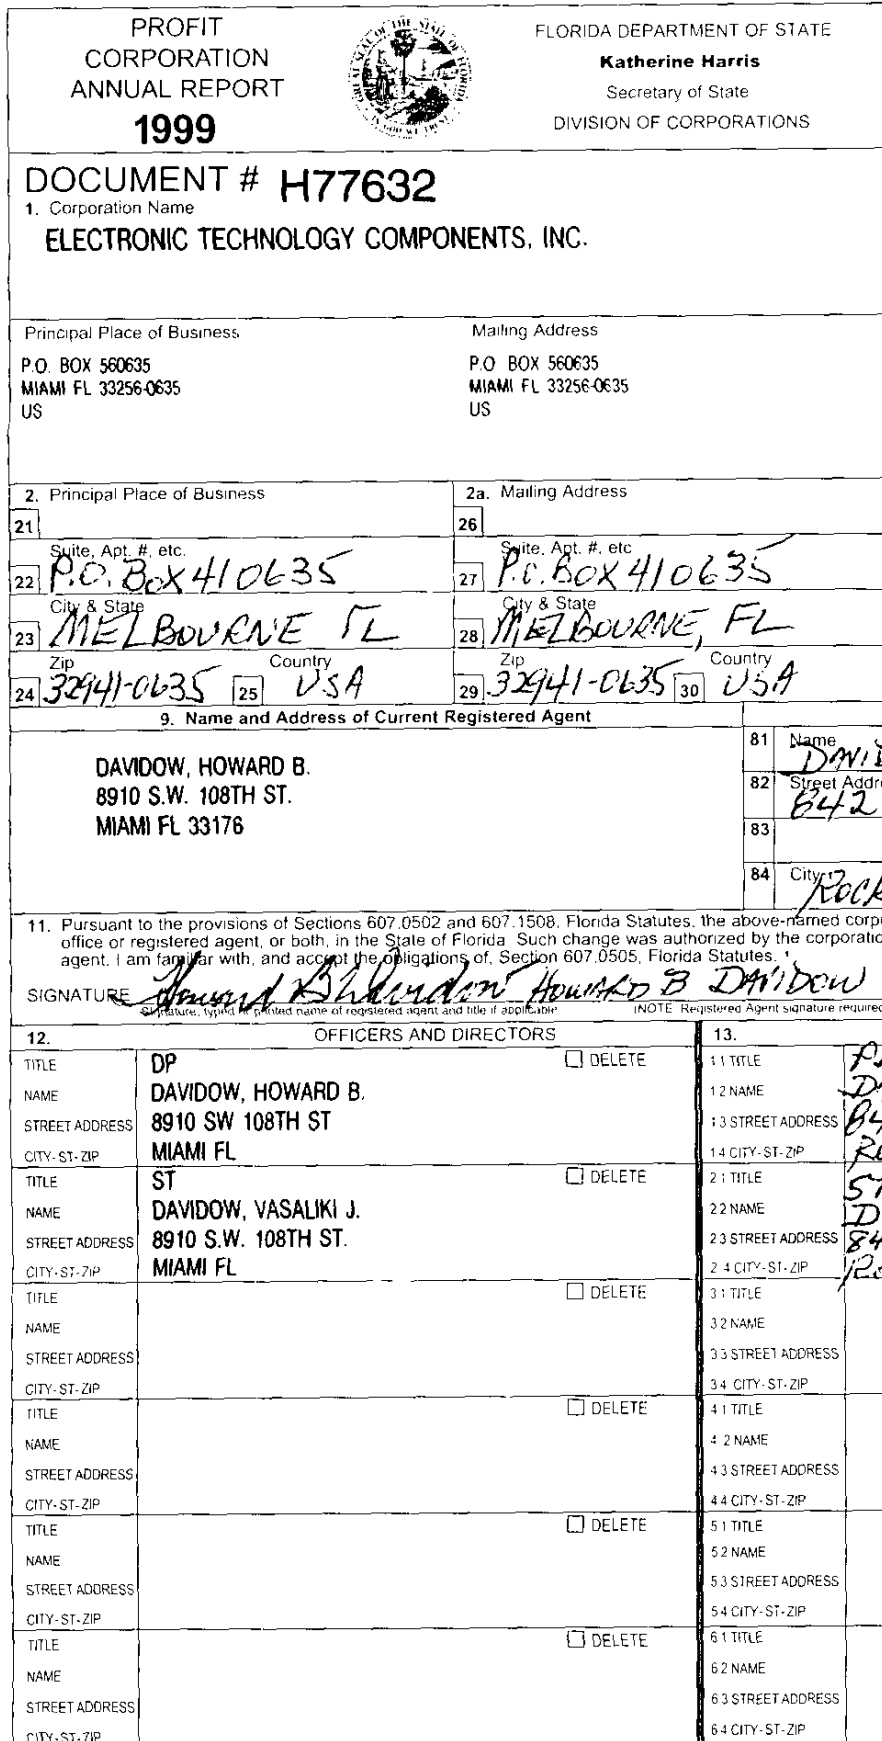 PROFIT
CORPORATION
ANNUAL REPORT
1999
FLORIDA DEPARTMENT OF STATE
Katherine Harris
Secretary of State
DIVISION OF CORPORATIONS
DOCUMENT # H77632
1. Corporation Name
ELECTRONIC TECHNOLOGY COMPONENTS, INC.
Principal Place of Business
P.O. BOX 560635
MIAMI FL 33256-0635
US
Mailing Address
P.O BOX 560635
MIAMI FL 33256-0635
US
2. Principal Place of Business
2a. Mailing Address
21
26
Suite, Apt. #, etc.
Suite, Apt. #, etc
22 P.O. BOX 410635
27 P.O. BOX 410635
City & State
City & State
23 MELBOURNE FL
28 MELBOURNE, FL
Zip
Country
Zip
Country
24 32941-0635 25 USA
29 32941-0635 30 USA
9. Name and Address of Current Registered Agent
DAVIDOW, HOWARD B.
8910 S.W. 108TH ST.
MIAMI FL 33176
81 Name
82 Street Addr
842
83
84 City
ROCK
11. Pursuant to the provisions of Sections 607.0502 and 607.1508, Florida Statutes, the above-named corp
office or registered agent, or both, in the State of Florida Such change was authorized by the corporatio
agent. I am familiar with, and accept the obligations of, Section 607.0505, Florida Statutes.
SIGNATURE Howard B Davidow HOWARD B DAVIDOW
Signature, typed or printed name of registered agent and title if applicable (NOTE Registered Agent signature required
12. OFFICERS AND DIRECTORS
13.
TITLE DP DELETE
NAME DAVIDOW, HOWARD B.
STREET ADDRESS 8910 SW 108TH ST
CITY-ST-ZIP MIAMI FL
1 1 TITLE
1 2 NAME
1 3 STREET ADDRESS
1 4 CITY-ST-ZIP
TITLE ST DELETE
NAME DAVIDOW, VASALIKI J.
STREET ADDRESS 8910 S.W. 108TH ST.
CITY-ST-ZIP MIAMI FL
2 1 TITLE
2 2 NAME
2 3 STREET ADDRESS
2 4 CITY-ST-ZIP
TITLE DELETE
NAME
STREET ADDRESS
CITY-ST-ZIP
3 1 TITLE
3 2 NAME
3 3 STREET ADDRESS
3 4 CITY-ST-ZIP
TITLE DELETE
NAME
STREET ADDRESS
CITY-ST-ZIP
4 1 TITLE
4 2 NAME
4 3 STREET ADDRESS
4 4 CITY-ST-ZIP
TITLE DELETE
NAME
STREET ADDRESS
CITY-ST-ZIP
5 1 TITLE
5 2 NAME
5 3 STREET ADDRESS
5 4 CITY-ST-ZIP
TITLE DELETE
NAME
STREET ADDRESS
CITY-ST-ZIP
6 1 TITLE
6 2 NAME
6 3 STREET ADDRESS
6 4 CITY-ST-ZIP